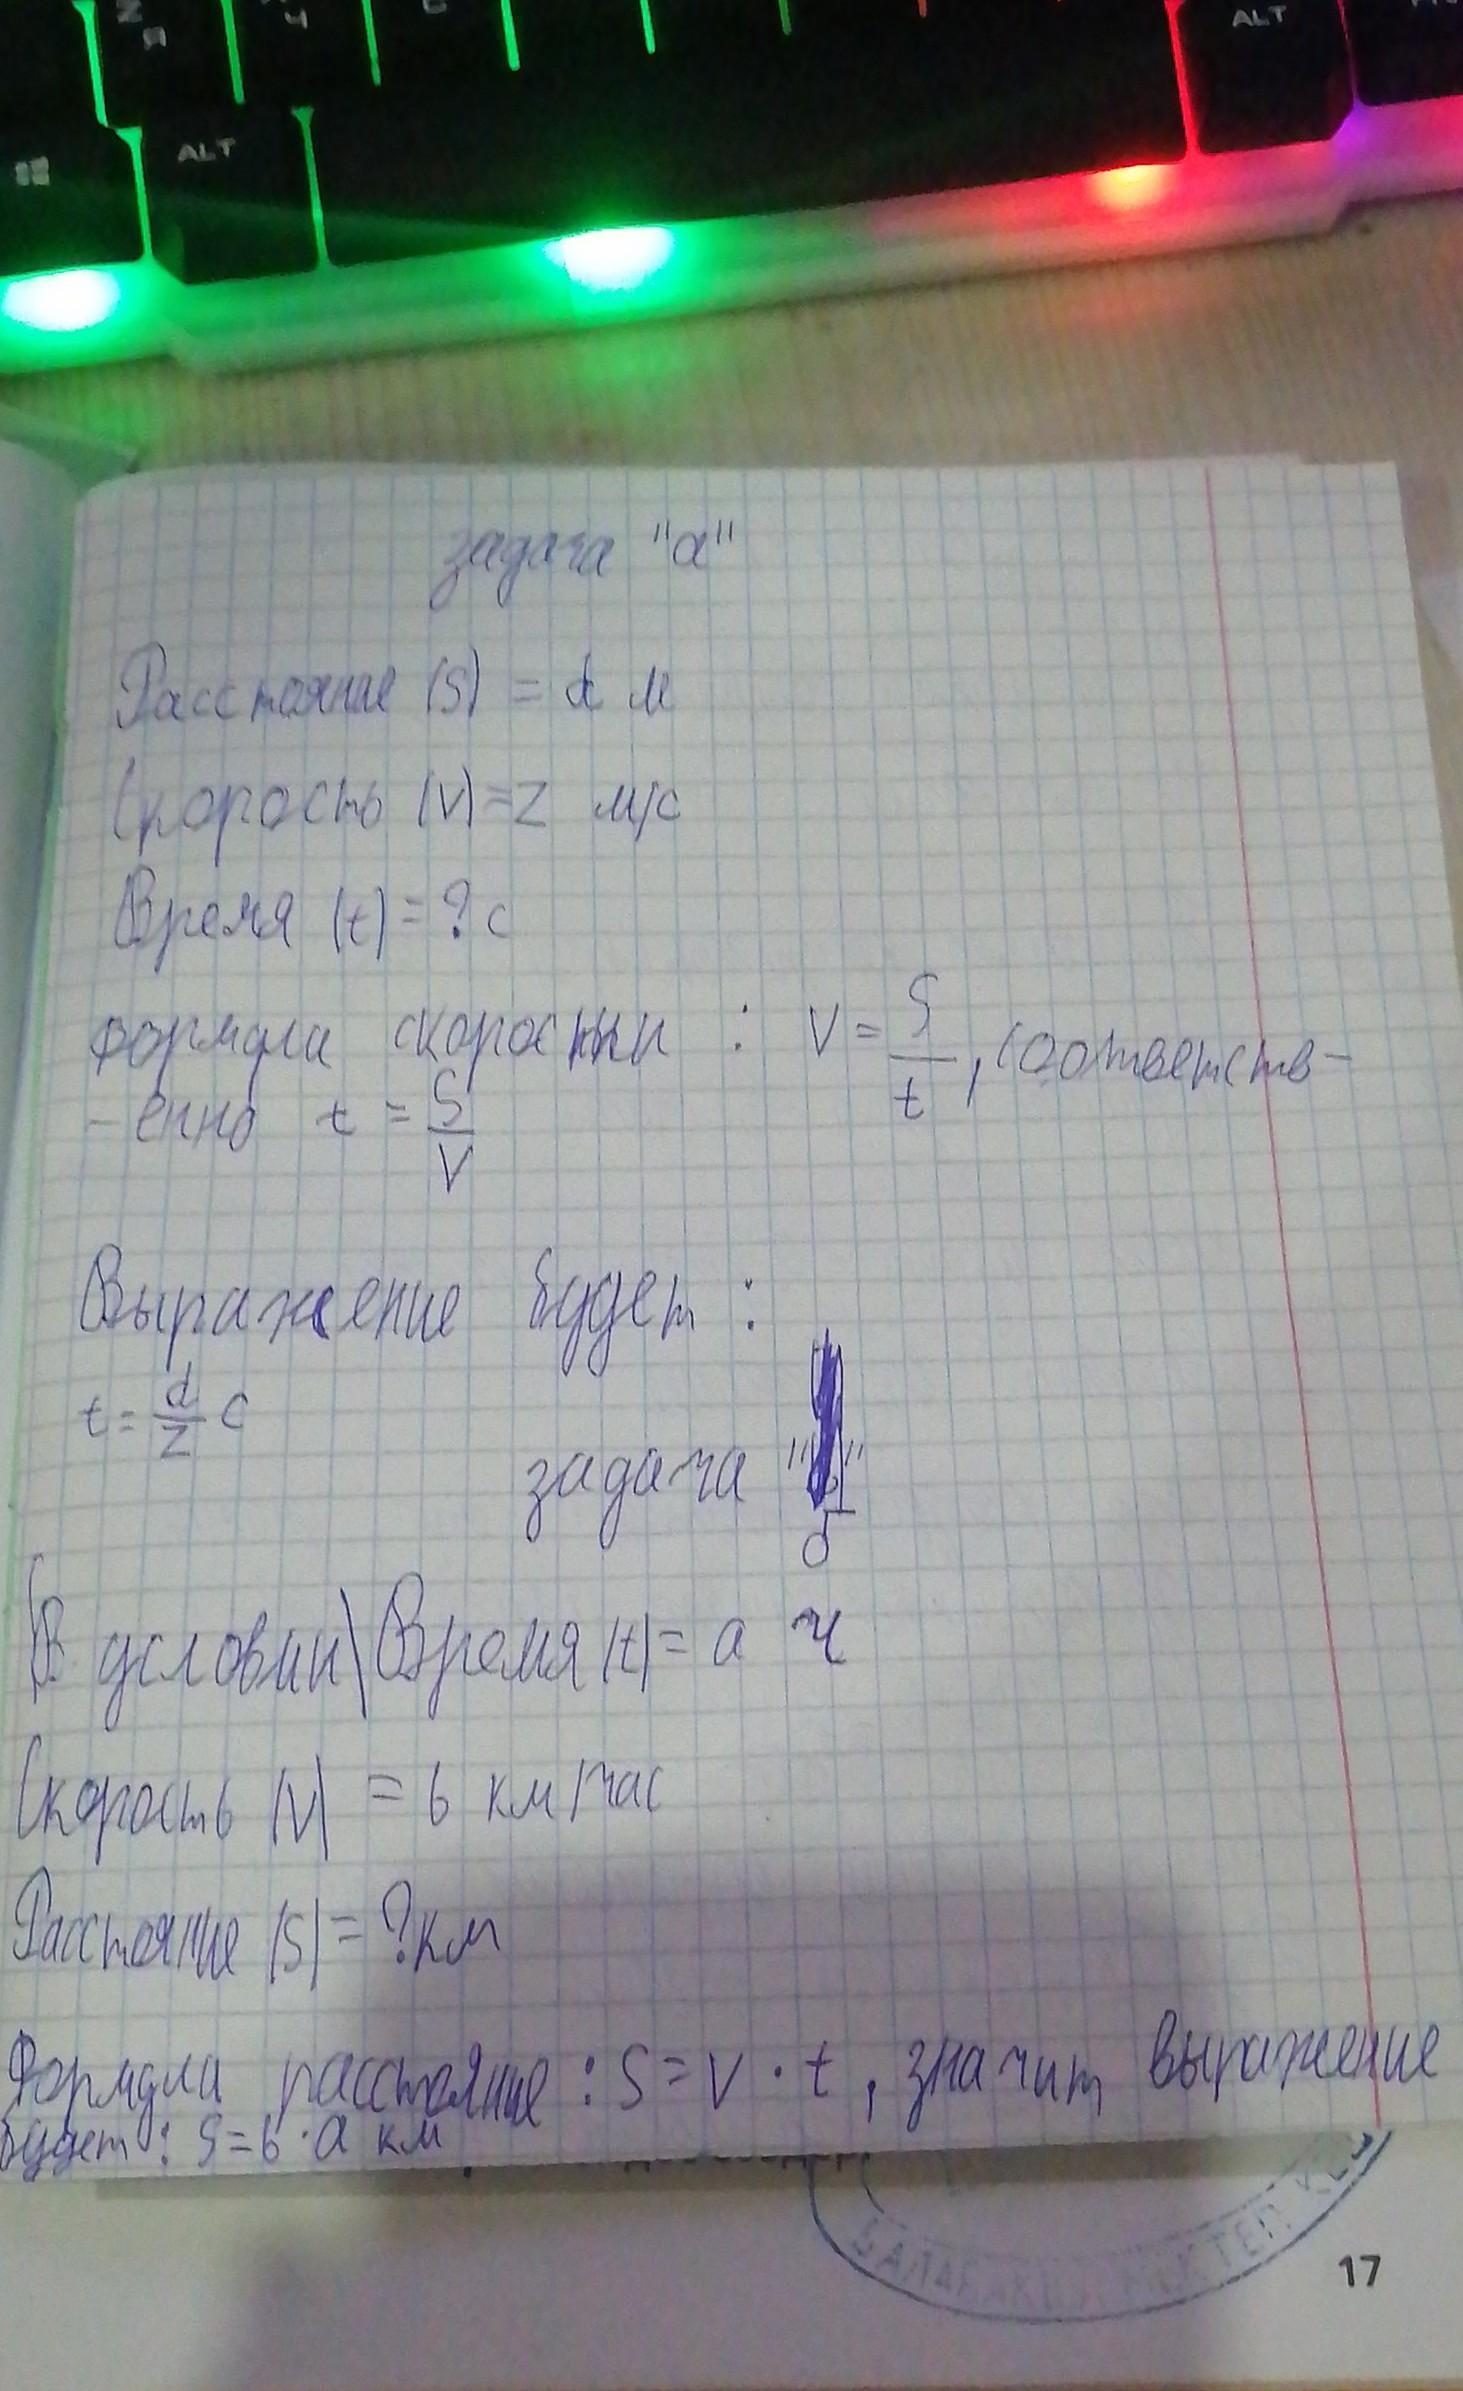 Z
Я
Ч
С
ALT
ALT
задача "а"
Расстояние (S) = d м
Скорость (V) = z м/с
Время (t) = ? с
формула скорости : V = S/t , соответств-
-енно t = S/V
Выражение будет :
t = d/z с
задача " "
б
В условии\ Время (t) = a ч
Скорость (V) = b км/час
Расстояние (S) = ? км
Формула расстояние : S = V · t , значит выражение
будет : S = b · a км
17